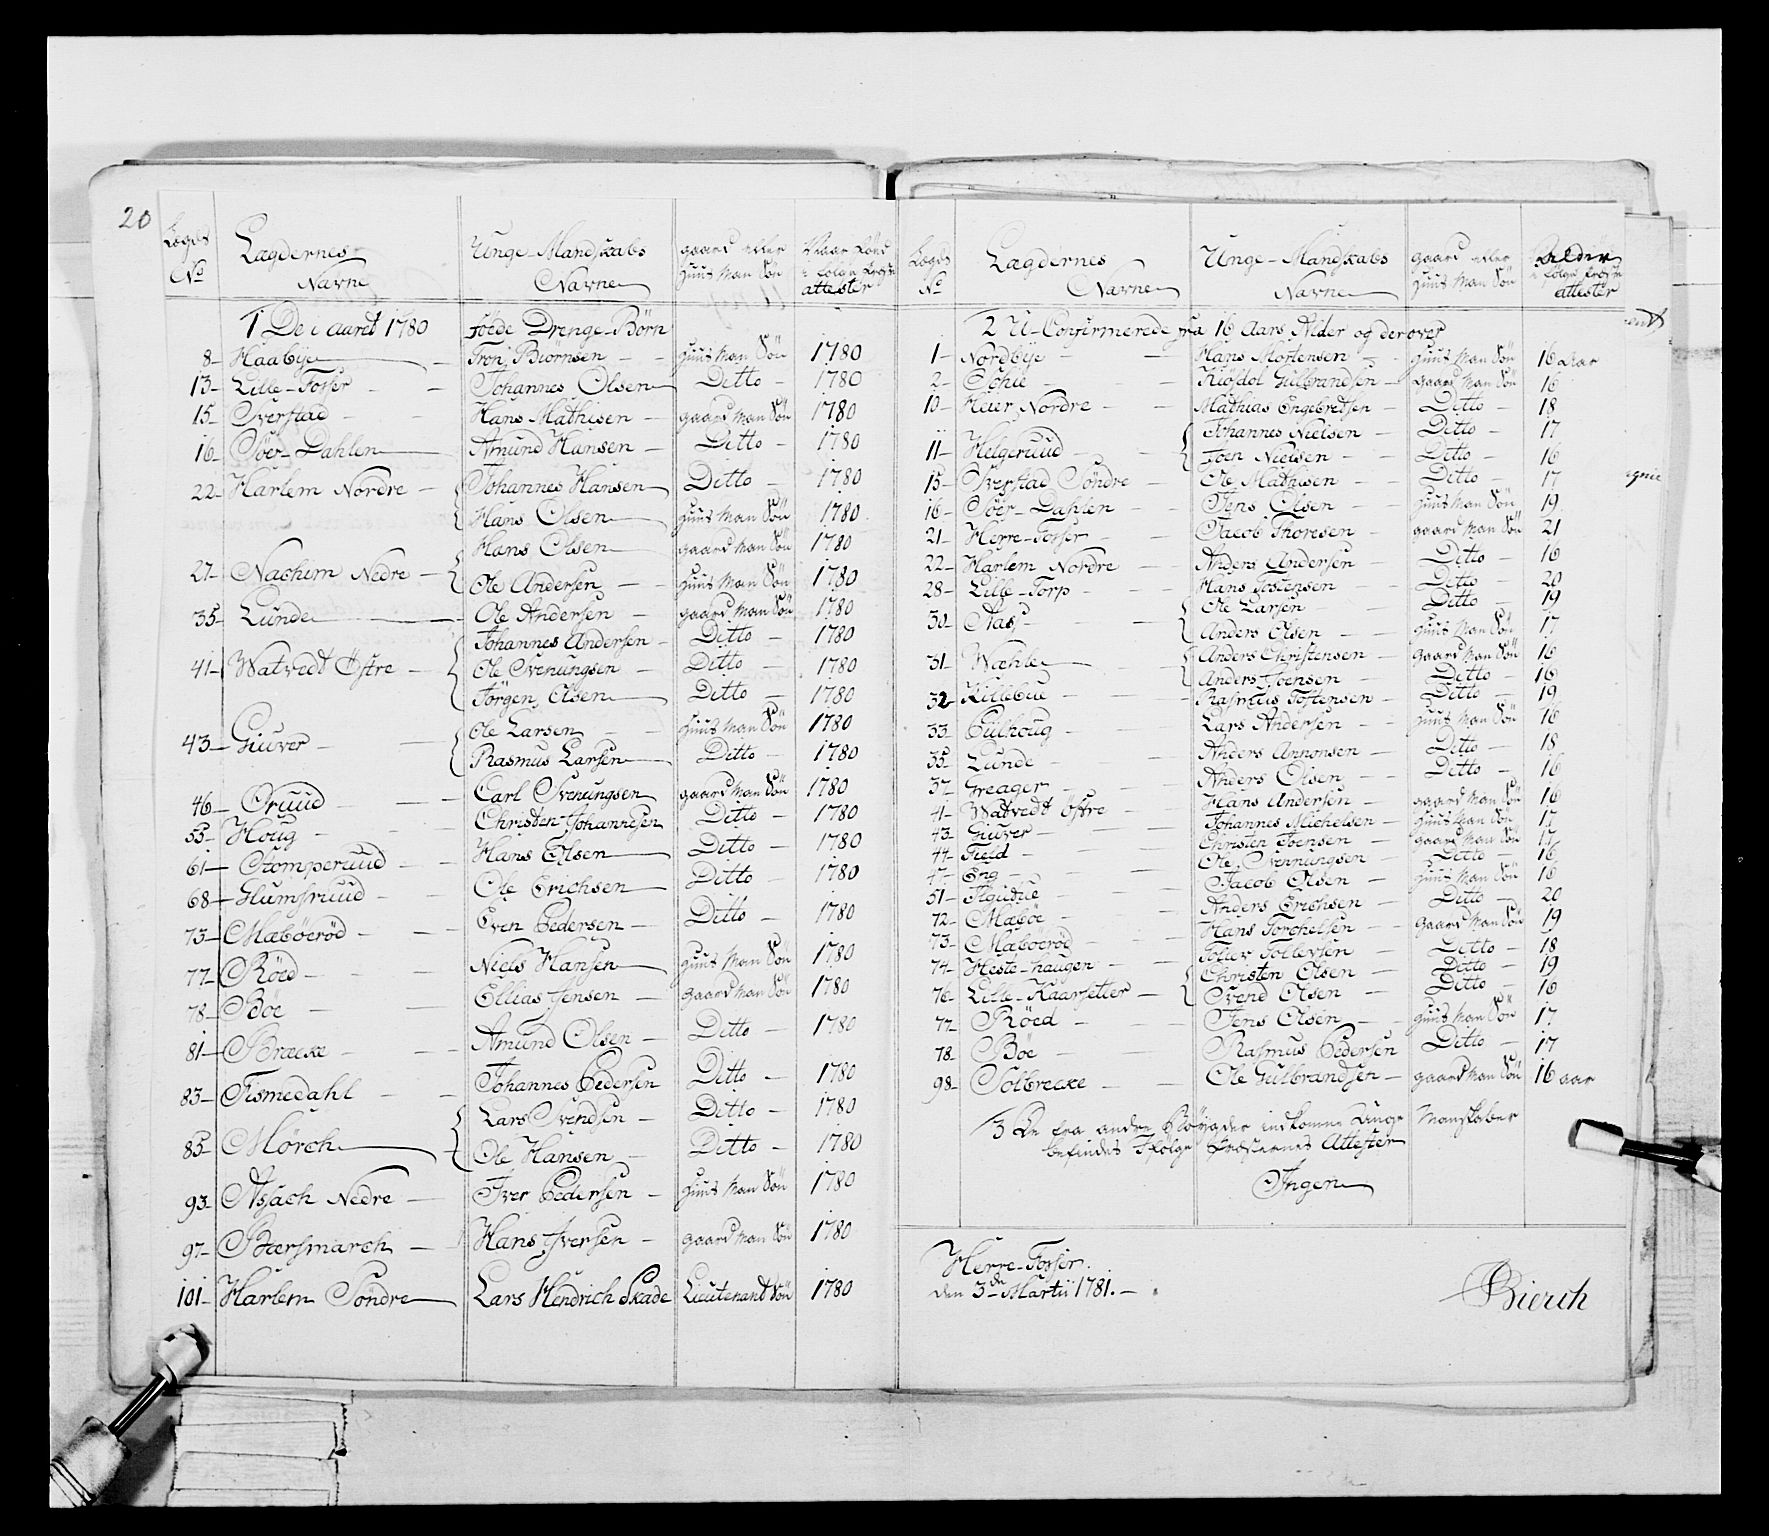 20
Lægds No | Lægdernes Navne | Unge Mandskabs Navne | gaard eller Huus Man Sön | Naar Föed i følge Præste attester
1 De i Aaret 1780 Foede Drenge-Börn
8 Haabye | Tron Biornsen | Huus Man Sön | 1780
13 Lille-Fosser | Johannes Olsen | Ditto | 1780
15 Sverstad | Hans Mathisen | gaard Man Sön | 1780
16 Söer-Dahlen | Amund Hansen | Ditto | 1780
22 Harlem Nordre | Johannes Hansen | Ditto | 1780
Hans Olsen | Huus Man Sön | 1780
Hans Olsen | gaard Man Sön | 1780
27 Nachim Nedre | Ole Andersen | Huus Man Sön | 1780
35 Lunde | Ole Andersen | gaard Man Sön | 1780
Johannes Andersen | Ditto | 1780
41 Watvedt Östre | Ole Svenungsen | Ditto | 1780
Jörgen Olsen | Ditto | 1780
Ole Larsen | Huus Man Sön | 1780
43 Giuver | Rasmus Larsen | Ditto | 1780
46 Oruud | Carl Svenungsen | gaard Man Sön | 1780
55 Houg | Christen Johannesen | Ditto | 1780
61 Stomperuud | Hans Olsen | Ditto | 1780
68 Glumsruud | Ole Erichsen | Ditto | 1780
73 Mæböeröd | Even Pedersen | Ditto | 1780
77 Röed | Niels Hansen | Huus Man Sön | 1780
78 Böe | Ellias Jensen | gaard Man Sön | 1780
81 Bræcke | Amund Olsen | Ditto | 1780
83 Tismedahl | Johannes Pedersen | Ditto | 1780
Lars Svendsen | Ditto | 1780
85 Mörch | Ole Hansen | Ditto | 1780
93 Assach Nedre | Iver Pedersen | Huus Man Sön | 1780
97 Biærsmarch | Hans Iversen | gaard Man Sön | 1780
101 Harlem Söndre | Lars Hendrich Skade | Lieutenant Sön | 1780
Lægds No | Lægdernes Navne | Unge-Mandskabs Navne | gaard eller Huus Man Sön | Alder i følge Præste attester
2 U-Confirmerede fra 16 Aars Alder og derover
1 Nordbye | Hans Mortensen | Huus Man Sön | 16 Aar
2 Schie | Kiösdol Gulbrandsen | gaard Man Sön | 16
10 Heier Nordre | Mathias Engebretsen | Ditto | 18
Johannes Nielsen | Ditto | 17
11 Helgeruud | Joen Nielsen | Ditto | 16
15 Sverstad Söndre | Ole Mathisen | Ditto | 17
16 Söer-Dahlen | Jens Olsen | Huus Man Sön | 19
21 Herre-Fosser | Jacob Thoresen | gaard Man Sön | 21
22 Harlem Nordre | Anders Andersen | Ditto | 16
28 Lille-Torp | Hans Jostensen | Ditto | 20
Ole Larsen | Ditto | 19
30 Aas | Anders Olsen | Huus Man Sön | 17
31 Wahle | Anders Christensen | gaard Man Sön | 16
Anders Joensen | Ditto | 16
32 Killebue | Rasmus Tostensen | Ditto | 19
33 Gulhoug | Lars Andersen | Huus Man Sön | 16
35 Lunde | Anders Annonsen | Ditto | 18
37 Greager | Anders Olsen | Ditto | 16
41 Watvedt Östre | Hans Andersen | gaard Man Sön | 16
43 Giuver | Johannes Michelsen | Huus Man Sön | 17
44 Field | Christen Joensen | gaard Man Sön | 17
47 Eng | Ole Svennungsen | Ditto | 16
51 | Jacob Olsen | Huus Man Sön | 16
72 Mæböe | Anders Erichsen | Ditto | 20
73 Mæböeröd | Hans Torchelsen | gaard Man Sön | 19
74 Heste-haugen | Tollev Tollevsen | Ditto | 18
Christen Olsen | Ditto | 19
76 Lille-Kaarsetter | Svend Olsen | Ditto | 16
77 Röed | Jens Olsen | Huus Man Sön | 17
78 Böe | Rasmus Pedersen | Ditto | 17
98 Solbrecke | Ole Gulbrandsen | gaard Man Sön | 16 aar
3 De fra andre indkomne Unge Manskaber
befindes Ifölge Præsternes Attester
Ingen
Herre-Fosser
den 3de Martii 1781.
Bierch